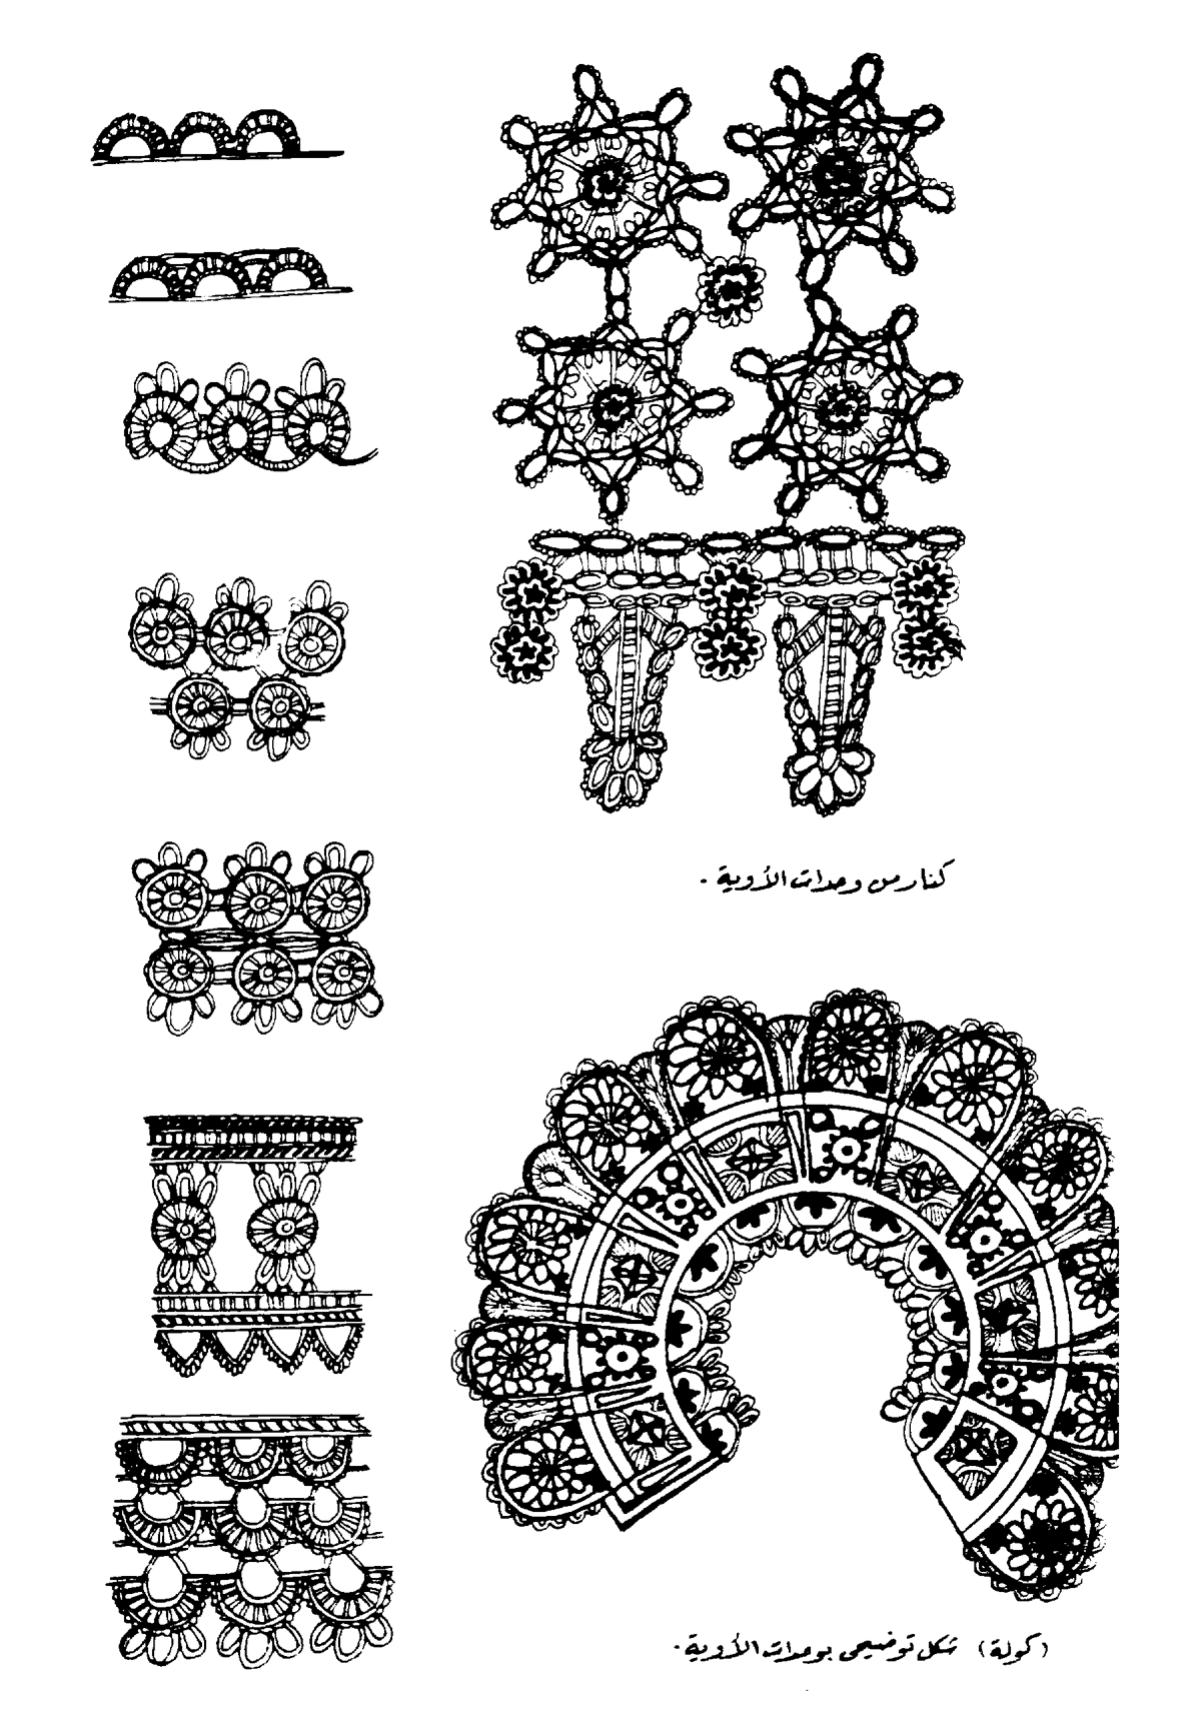 كنار من وحدات الأوية .
(كولة) شكل توضيحى بوحدات الأوية .